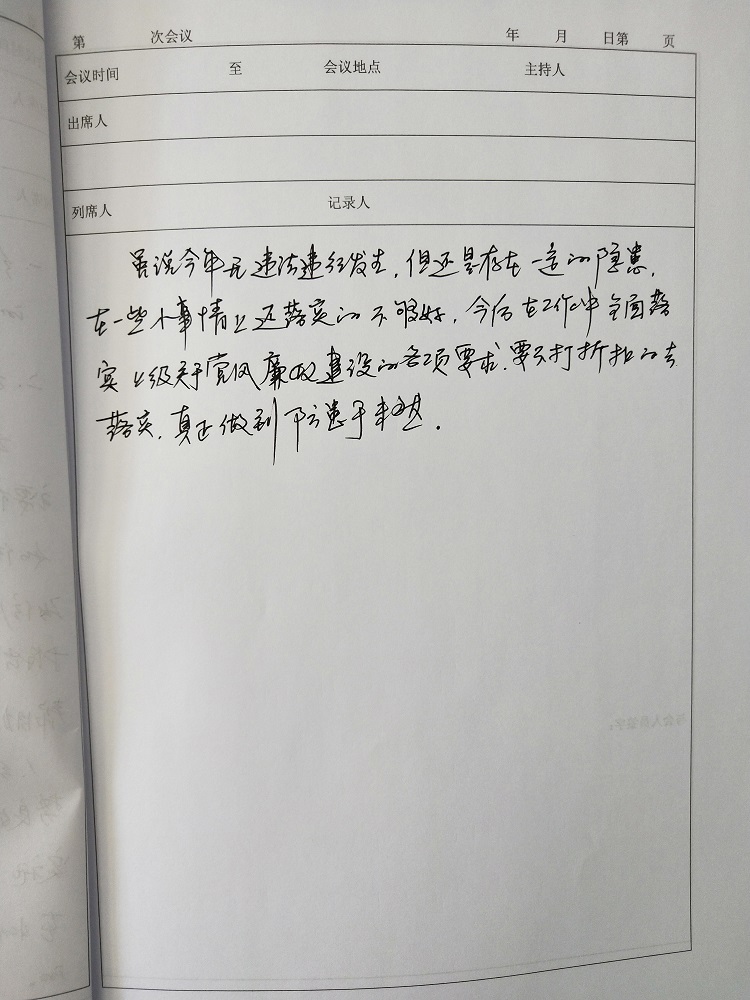 第 次会议 年 月 日第 页
会议时间 至 会议地点 主持人
出席人
列席人 记录人
虽说今年无违法违行发生，但还是存在一定的隐患，
在一些小事情上还落实的不够好，今后在工作中全面落
实上级关于党风廉政建设的各项要求，要不打折扣的去
落实，真正做到防患于未然。